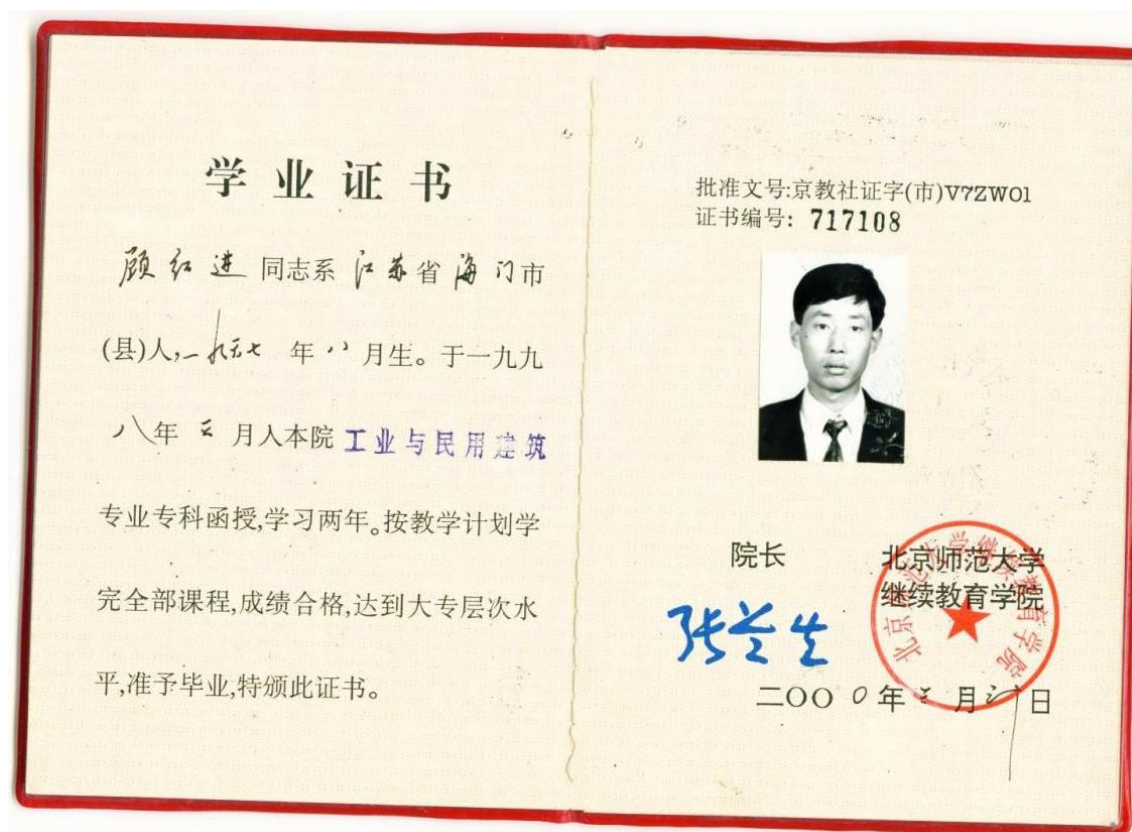 学业证书
顾红进同志系江苏省海门市
(县)人,一九五七年八月生。于一九九
八年三月人本院工业与民用建筑
专业专科函授,学习两年。按教学计划学
完全部课程,成绩合格,达到大专层次水
平,准予毕业,特颁此证书。
批准文号:京教社证字(市)V7ZW01
证书编号: 717108
院长
张兰生
北京师范大学
继续教育学院
北京师范大学继续教育学院
二〇〇〇年三月 日